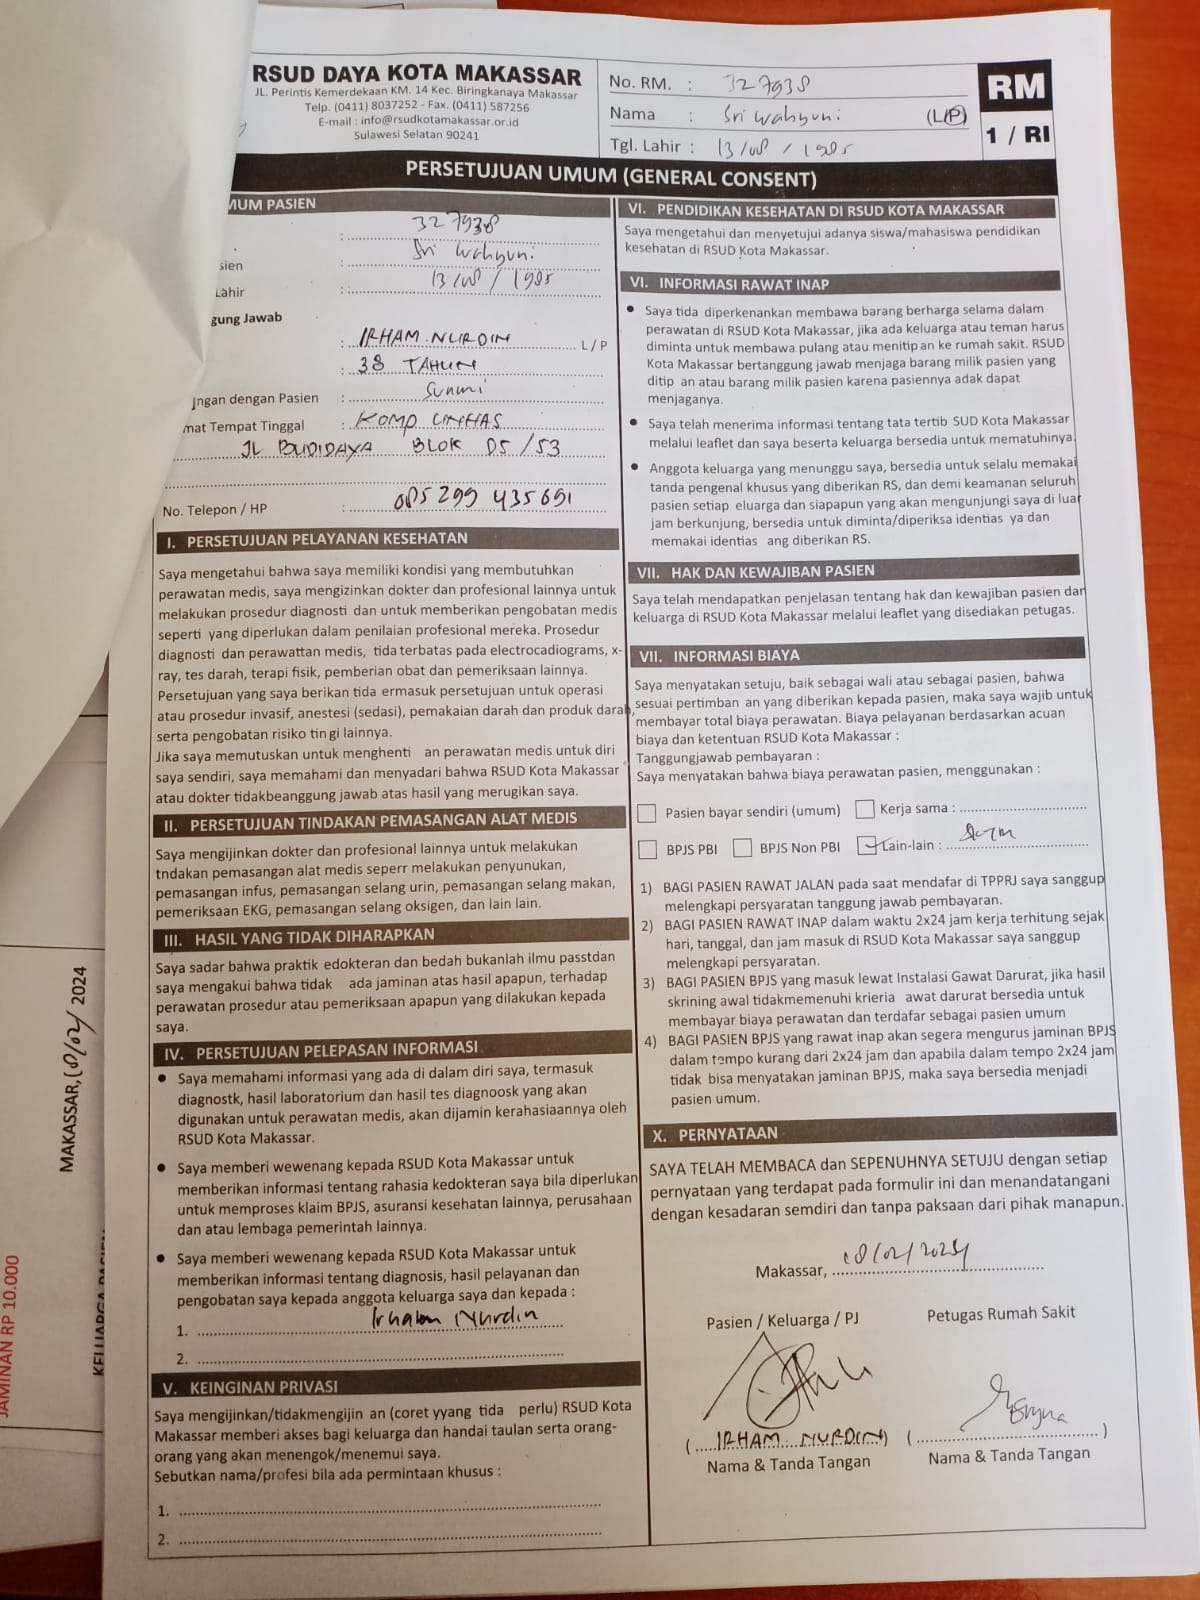 RSUD DAYA KOTA MAKASSAR
JL. Perintis Kemerdekaan KM. 14 Kec. Biringkanaya Makassar
Telp. (0411) 8037252 - Fax. (0411) 587256
E-mail : info@rsudkotamakassar.or.id
Sulawesi Selatan 90241
No. RM. : 327938
Nama : Sri Wahyuni (L/P)
Tgl. Lahir : 13/08/1985
RM
1 / RI
PERSETUJUAN UMUM (GENERAL CONSENT)
MUM PASIEN
: 327938
sien : Sri Wahyuni
Lahir : 13/08/1985
gung Jawab
: IRHAM NURDIN L/P
: 38 TAHUN
ngan dengan Pasien : Suami
mat Tempat Tinggal : KOMP UNHAS
JL BUDIDAYA BLOK D5/53
No. Telepon / HP : 085299 435691
I. PERSETUJUAN PELAYANAN KESEHATAN
Saya mengetahui bahwa saya memiliki kondisi yang membutuhkan
perawatan medis, saya mengizinkan dokter dan profesional lainnya untuk
melakukan prosedur diagnosti dan untuk memberikan pengobatan medis
seperti yang diperlukan dalam penilaian profesional mereka. Prosedur
diagnosti dan perawattan medis, tida terbatas pada electrocadiograms, x-
ray, tes darah, terapi fisik, pemberian obat dan pemeriksaan lainnya.
Persetujuan yang saya berikan tida ermasuk persetujuan untuk operasi
atau prosedur invasif, anestesi (sedasi), pemakaian darah dan produk darah,
serta pengobatan risiko tin gi lainnya.
Jika saya memutuskan untuk menghenti an perawatan medis untuk diri
saya sendiri, saya memahami dan menyadari bahwa RSUD Kota Makassar
atau dokter tidakbeanggung jawab atas hasil yang merugikan saya.
II. PERSETUJUAN TINDAKAN PEMASANGAN ALAT MEDIS
Saya mengijinkan dokter dan profesional lainnya untuk melakukan
tndakan pemasangan alat medis seperr melakukan penyunukan,
pemasangan infus, pemasangan selang urin, pemasangan selang makan,
pemeriksaan EKG, pemasangan selang oksigen, dan lain lain.
III. HASIL YANG TIDAK DIHARAPKAN
Saya sadar bahwa praktik edokteran dan bedah bukanlah ilmu passtdan
saya mengakui bahwa tidak ada jaminan atas hasil apapun, terhadap
perawatan prosedur atau pemeriksaan apapun yang dilakukan kepada
saya.
IV. PERSETUJUAN PELEPASAN INFORMASI
• Saya memahami informasi yang ada di dalam diri saya, termasuk
diagnostk, hasil laboratorium dan hasil tes diagnoosk yang akan
digunakan untuk perawatan medis, akan dijamin kerahasiaannya oleh
RSUD Kota Makassar.
• Saya memberi wewenang kepada RSUD Kota Makassar untuk
memberikan informasi tentang rahasia kedokteran saya bila diperlukan
untuk memproses klaim BPJS, asuransi kesehatan lainnya, perusahaan
dan atau lembaga pemerintah lainnya.
• Saya memberi wewenang kepada RSUD Kota Makassar untuk
memberikan informasi tentang diagnosis, hasil pelayanan dan
pengobatan saya kepada anggota keluarga saya dan kepada :
1. Irham Nurdin
2.
V. KEINGINAN PRIVASI
Saya mengijinkan/tidakmengijin an (coret yyang tida perlu) RSUD Kota
Makassar memberi akses bagi keluarga dan handai taulan serta orang-
orang yang akan menengok/menemui saya.
Sebutkan nama/profesi bila ada permintaan khusus :
1.
2.
VI. PENDIDIKAN KESEHATAN DI RSUD KOTA MAKASSAR
Saya mengetahui dan menyetujui adanya siswa/mahasiswa pendidikan
kesehatan di RSUD Kota Makassar.
VI. INFORMASI RAWAT INAP
• Saya tida diperkenankan membawa barang berharga selama dalam
perawatan di RSUD Kota Makassar, jika ada keluarga atau teman harus
diminta untuk membawa pulang atau menitip an ke rumah sakit. RSUD
Kota Makassar bertanggung jawab menjaga barang milik pasien yang
ditip an atau barang milik pasien karena pasiennya adak dapat
menjaganya.
• Saya telah menerima informasi tentang tata tertib SUD Kota Makassar
melalui leaflet dan saya beserta keluarga bersedia untuk mematuhinya.
• Anggota keluarga yang menunggu saya, bersedia untuk selalu memakai
tanda pengenal khusus yang diberikan RS, dan demi keamanan seluruh
pasien setiap eluarga dan siapapun yang akan mengunjungi saya di luar
jam berkunjung, bersedia untuk diminta/diperiksa identias ya dan
memakai identias ang diberikan RS.
VII. HAK DAN KEWAJIBAN PASIEN
Saya telah mendapatkan penjelasan tentang hak dan kewajiban pasien dan
keluarga di RSUD Kota Makassar melalui leaflet yang disediakan petugas.
VII. INFORMASI BIAYA
Saya menyatakan setuju, baik sebagai wali atau sebagai pasien, bahwa
sesuai pertimban an yang diberikan kepada pasien, maka saya wajib untuk
membayar total biaya perawatan. Biaya pelayanan berdasarkan acuan
biaya dan ketentuan RSUD Kota Makassar :
Tanggungjawab pembayaran :
Saya menyatakan bahwa biaya perawatan pasien, menggunakan :
Pasien bayar sendiri (umum) Kerja sama :
BPJS PBI BPJS Non PBI Lain-lain :
1) BAGI PASIEN RAWAT JALAN pada saat mendafar di TPPRJ saya sanggup
melengkapi persyaratan tanggung jawab pembayaran.
2) BAGI PASIEN RAWAT INAP dalam waktu 2x24 jam kerja terhitung sejak
hari, tanggal, dan jam masuk di RSUD Kota Makassar saya sanggup
melengkapi persyaratan.
3) BAGI PASIEN BPJS yang masuk lewat Instalasi Gawat Darurat, jika hasil
skrining awal tidakmemenuhi krieria awat darurat bersedia untuk
membayar biaya perawatan dan terdafar sebagai pasien umum
4) BAGI PASIEN BPJS yang rawat inap akan segera mengurus jaminan BPJS
dalam tempo kurang dari 2x24 jam dan apabila dalam tempo 2x24 jam
tidak bisa menyatakan jaminan BPJS, maka saya bersedia menjadi
pasien umum.
X. PERNYATAAN
SAYA TELAH MEMBACA dan SEPENUHNYA SETUJU dengan setiap
pernyataan yang terdapat pada formulir ini dan menandatangani
dengan kesadaran semdiri dan tanpa paksaan dari pihak manapun.
Makassar, 18/02/2024
Pasien / Keluarga / PJ Petugas Rumah Sakit
(IRHAM NURDIN) ( )
Nama & Tanda Tangan Nama & Tanda Tangan
MAKASSAR, 18/02/ 2024
KELUARGA PASIEN
JAMINAN RP 10.000